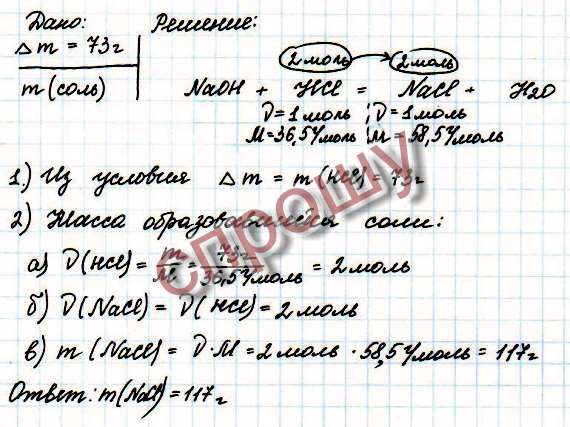 Дано:
Δm = 73г
m(соль)
Решение:
2 моль 2 моль
NaOH + HCl = NaCl + H2O
ν=1моль ; ν=1моль
M=36,5г/моль M=58,5г/моль
1.) Из условия Δm = m(HCl) = 73г
2) Масса образовавшейся соли:
а) ν(HCl) = m/M = 73г/36,5г/моль = 2 моль
б) ν(NaCl) = ν(HCl) = 2 моль
в) m(NaCl) = ν·M = 2 моль · 58,5г/моль = 117г
Ответ: m(NaCl) = 117г
спрошу